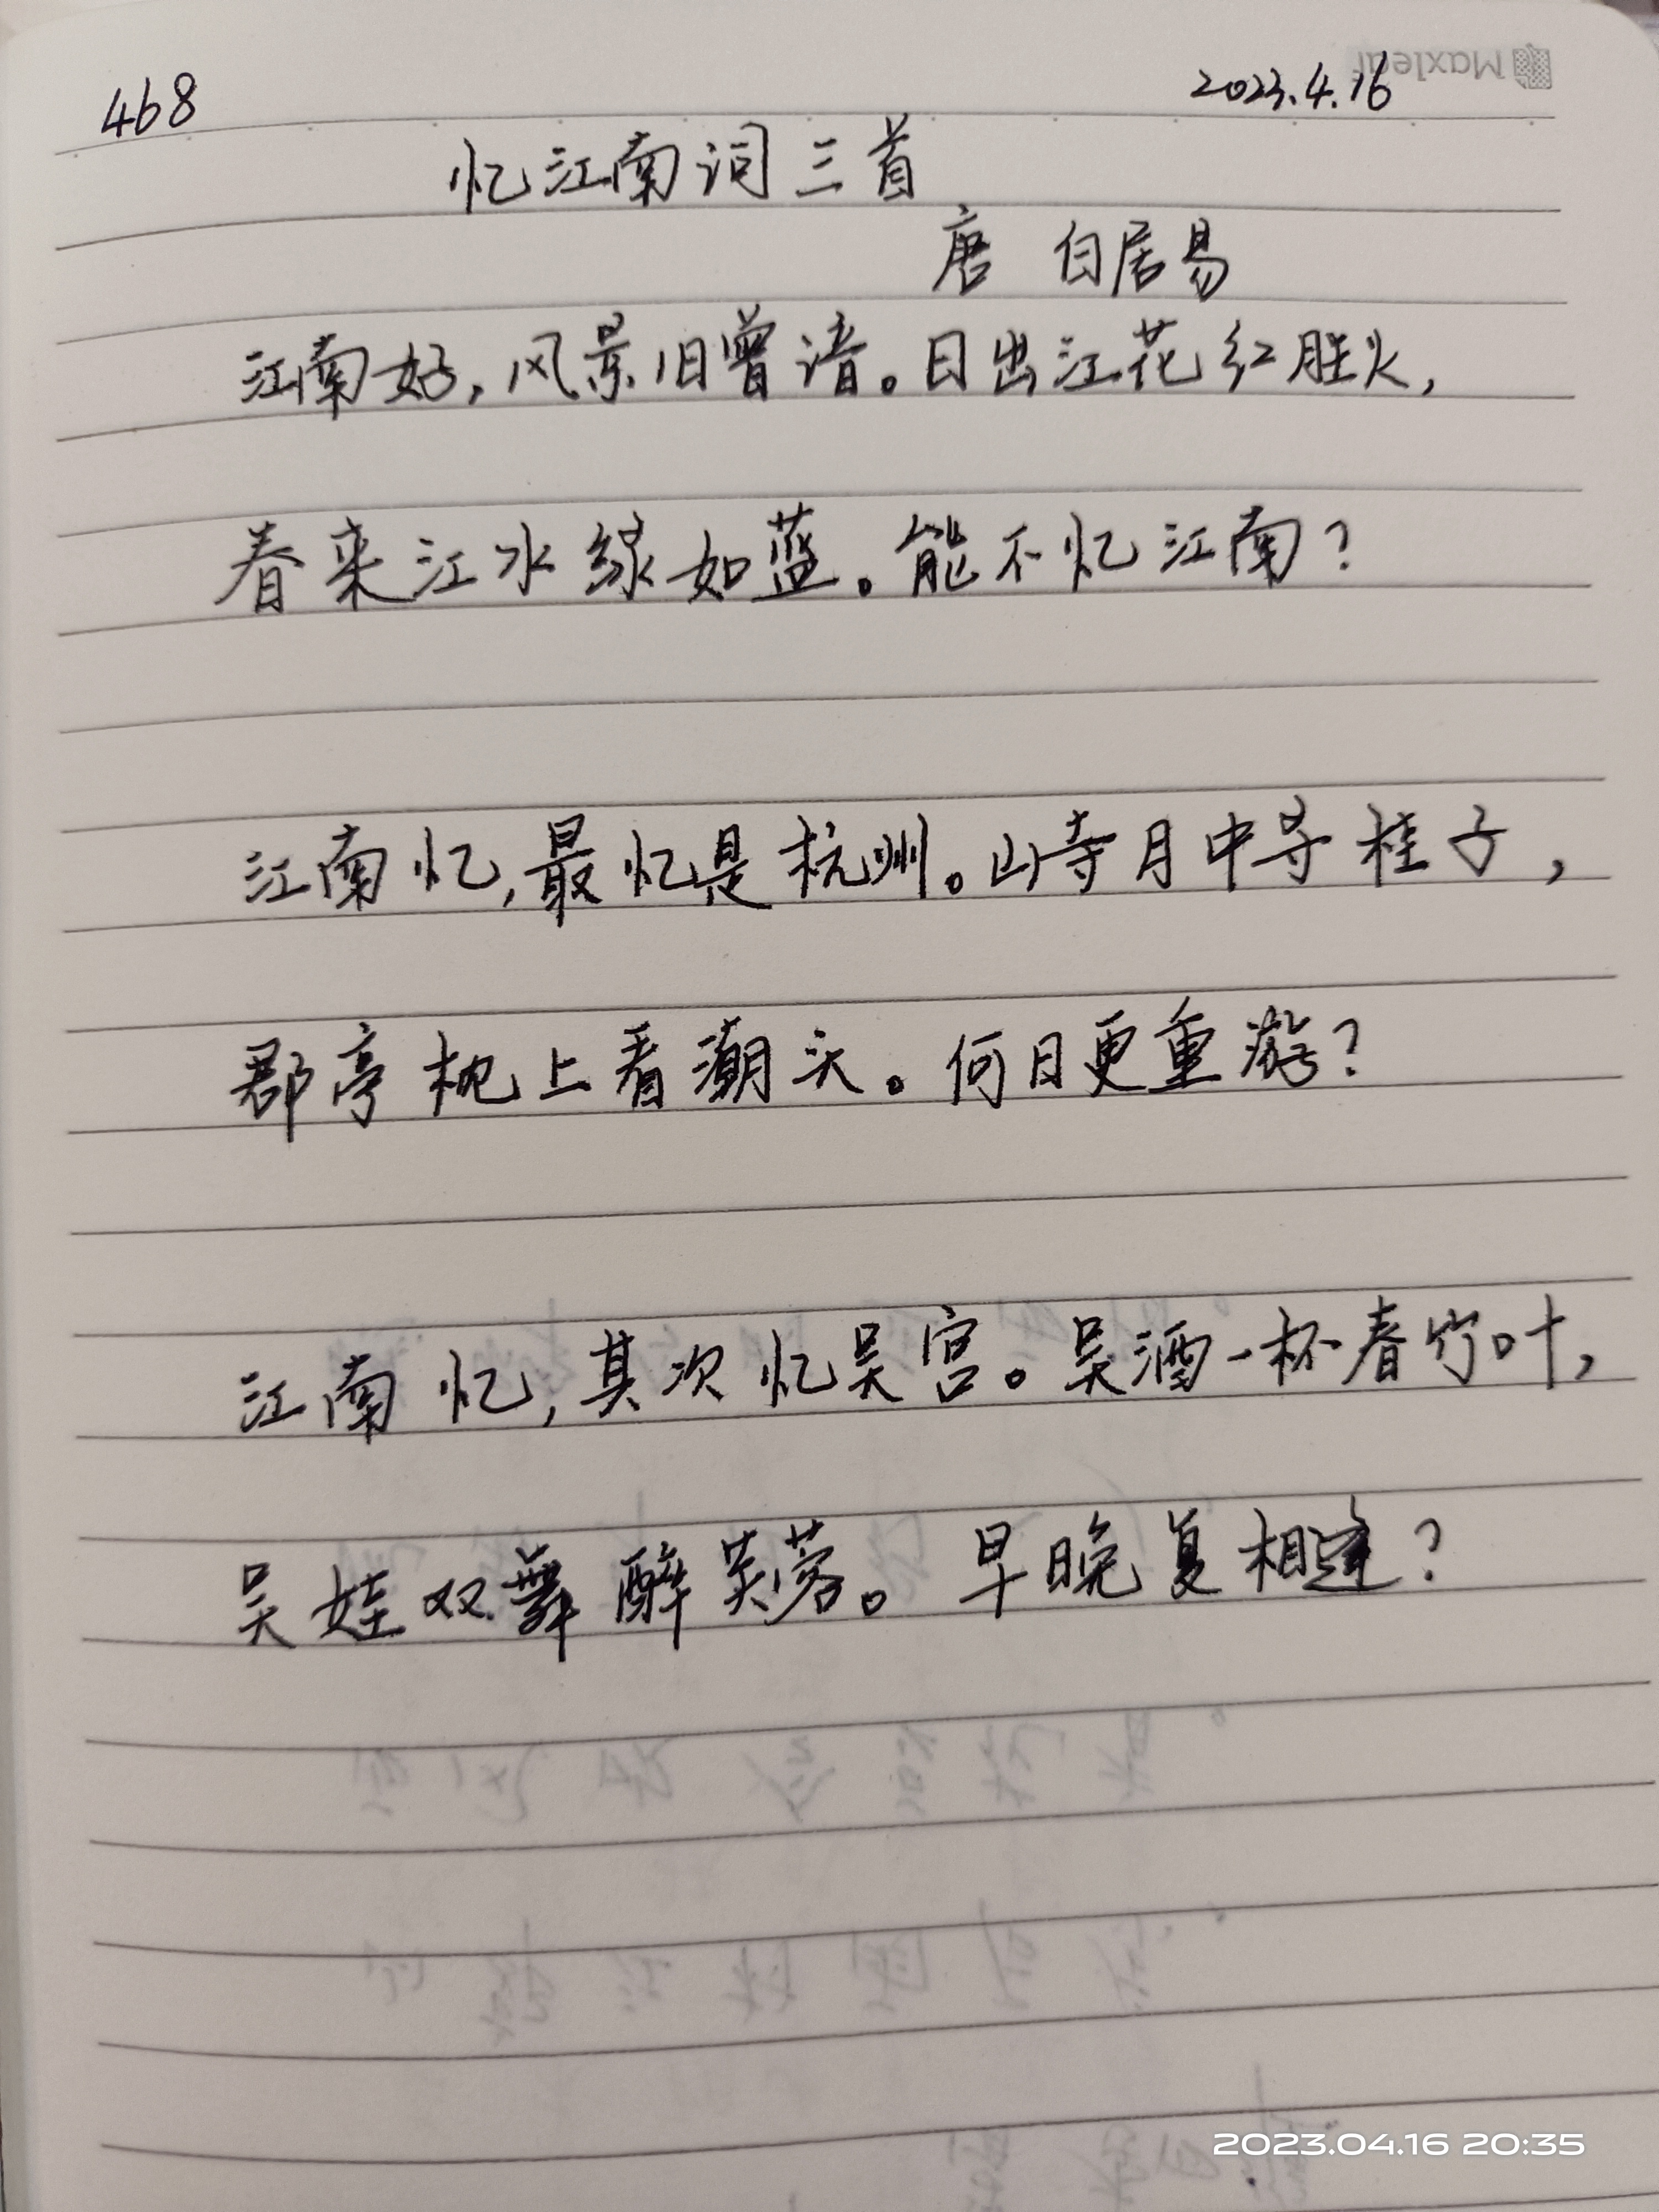 468
2023.4.16
Maxleaf
忆江南词三首
唐 白居易
江南好,风景旧曾谙。日出江花红胜火,
春来江水绿如蓝。能不忆江南?
江南忆,最忆是杭州。山寺月中寻桂子,
郡亭枕上看潮头。何日更重游?
江南忆,其次忆吴宫。吴酒一杯春竹叶,
吴娃双舞醉芙蓉。早晚复相逢?
2023.04.16 20:35